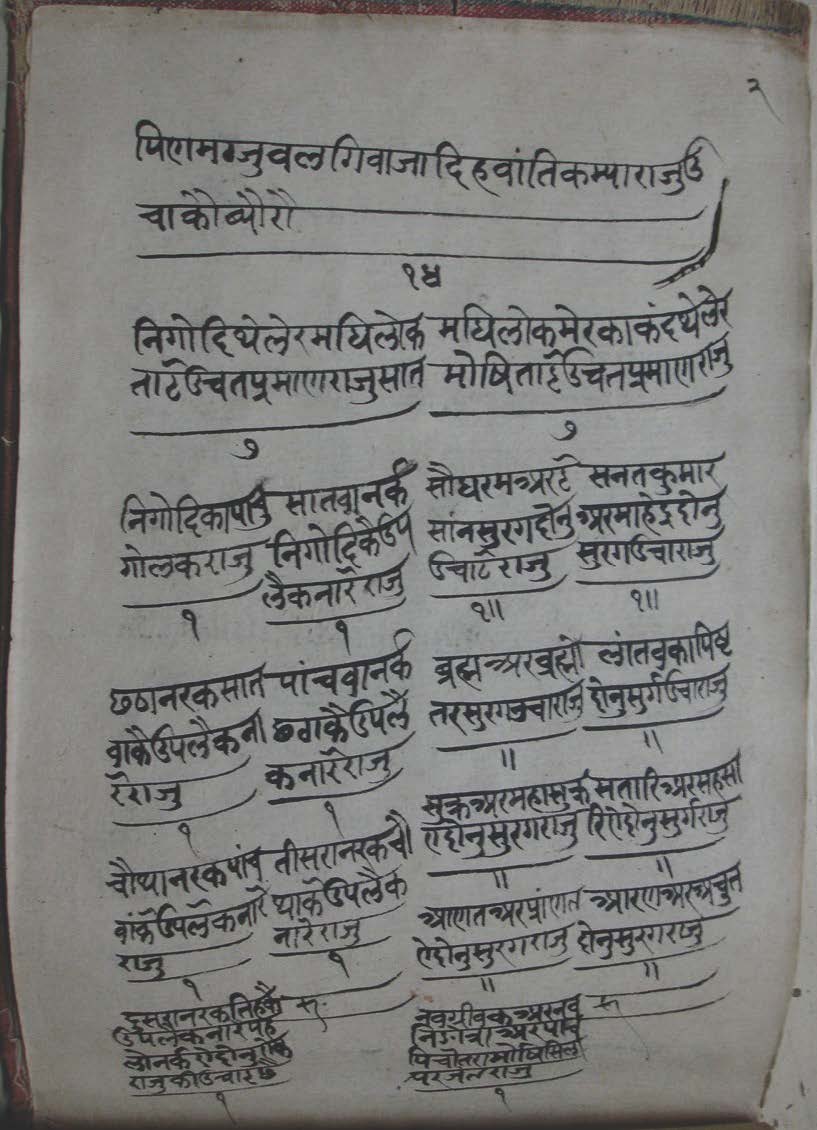 २
पिणमग्जुवलगिवाजादिहवांतिकम्पाराजुउ
चाकौव्यौरौ
१४
निगोदिथेलेरमधिलोक
ताईउचितप्रमाणराजुसात
७
मधिलोकमेरकाकंदथेलेर
मोषिताईउचितप्रमाणराजु
७
निगोदिकापानु
गोलकराजु
१
सातवानर्क
निगोदिकैउप
लैकनारैराजु
१
छठानरकसात
वाकैउपलैकना
रैराजु
१
पांचवानर्क
छठाकैउपलै
कनारैराजु
१
चौथानरकपांच
वांकैउपलैकनारै
राजु
१
तीसरानरकचौ
थाकैउपलैक
नारैराजु
१
दुसरानरकतिहकै
उपलैकनारैपह
राजुकीउचाइछै
१
सौधरमअरई
सांनसुरगदोनु
उचाईराजु
१॥
सनतकुमार
अरमाहेद्रदोनु
सुरगउचाराजु
१॥
ब्रह्मअरब्रह्मो
तरसुरगउचाराजु
॥
लांतवकापिष्ट
दोनुसुर्गउचाराजु
॥
सुक्रअरमहासुक्र
एदोनुसुरगराजु
॥
सतारिअरसहसा
रिऐदोनुसुर्गराजु
॥
आणतअरप्रांणत
ऐदोनुसुरगराजु
॥
आरणअरअचुत
दोनुसुरगराजु
॥
नवग्रीवकअरनव
परजंतराजु
१